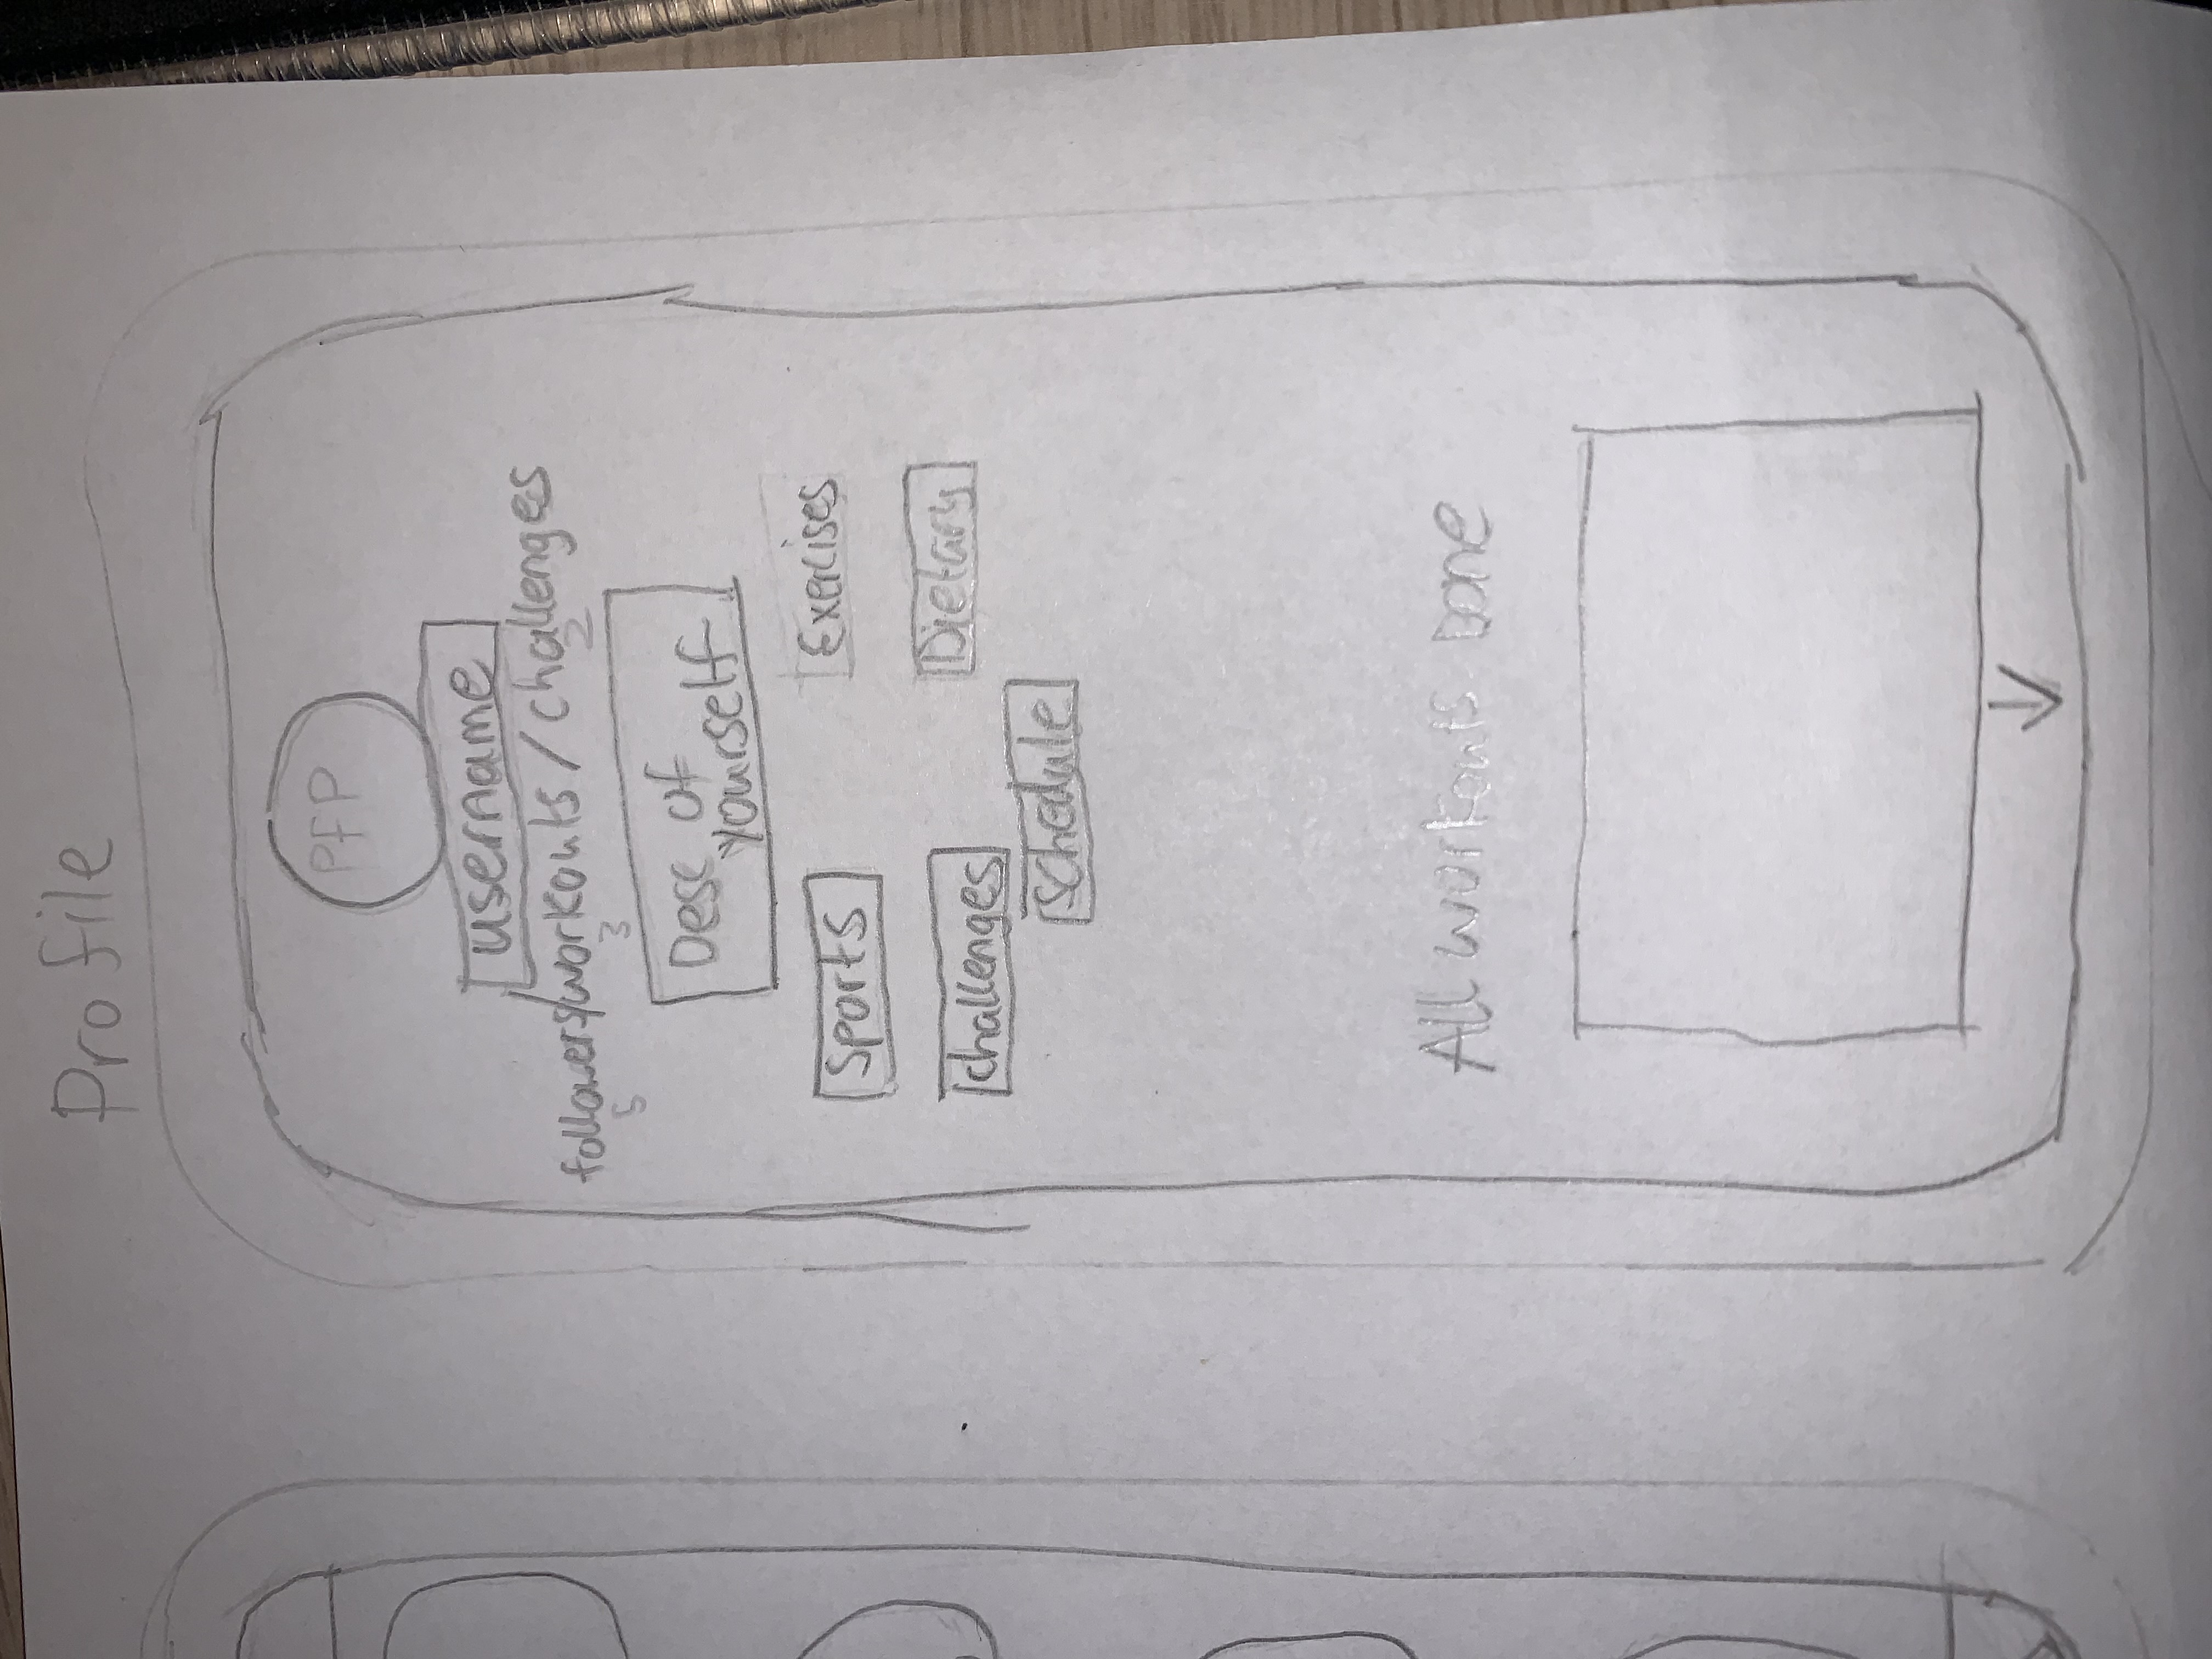 Profile
PFP
username
followers/workouts/challenges
5 3 2
Desc of
yourself
Sports Exercises
challenges Dietary
schedule
All workouts Done